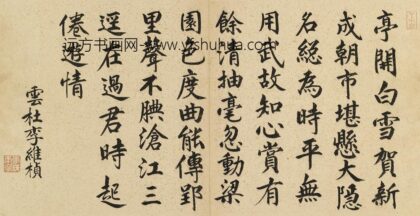 亭開白雪賀新
成朝市堪懸大隱
名總為時平無
用武故知心賞有
餘清抽毫忽動梁
園色度曲能傳郢
里聲不腆滄江三
逕在過君時起
倦遊情
雲杜李維楨
远方书画网